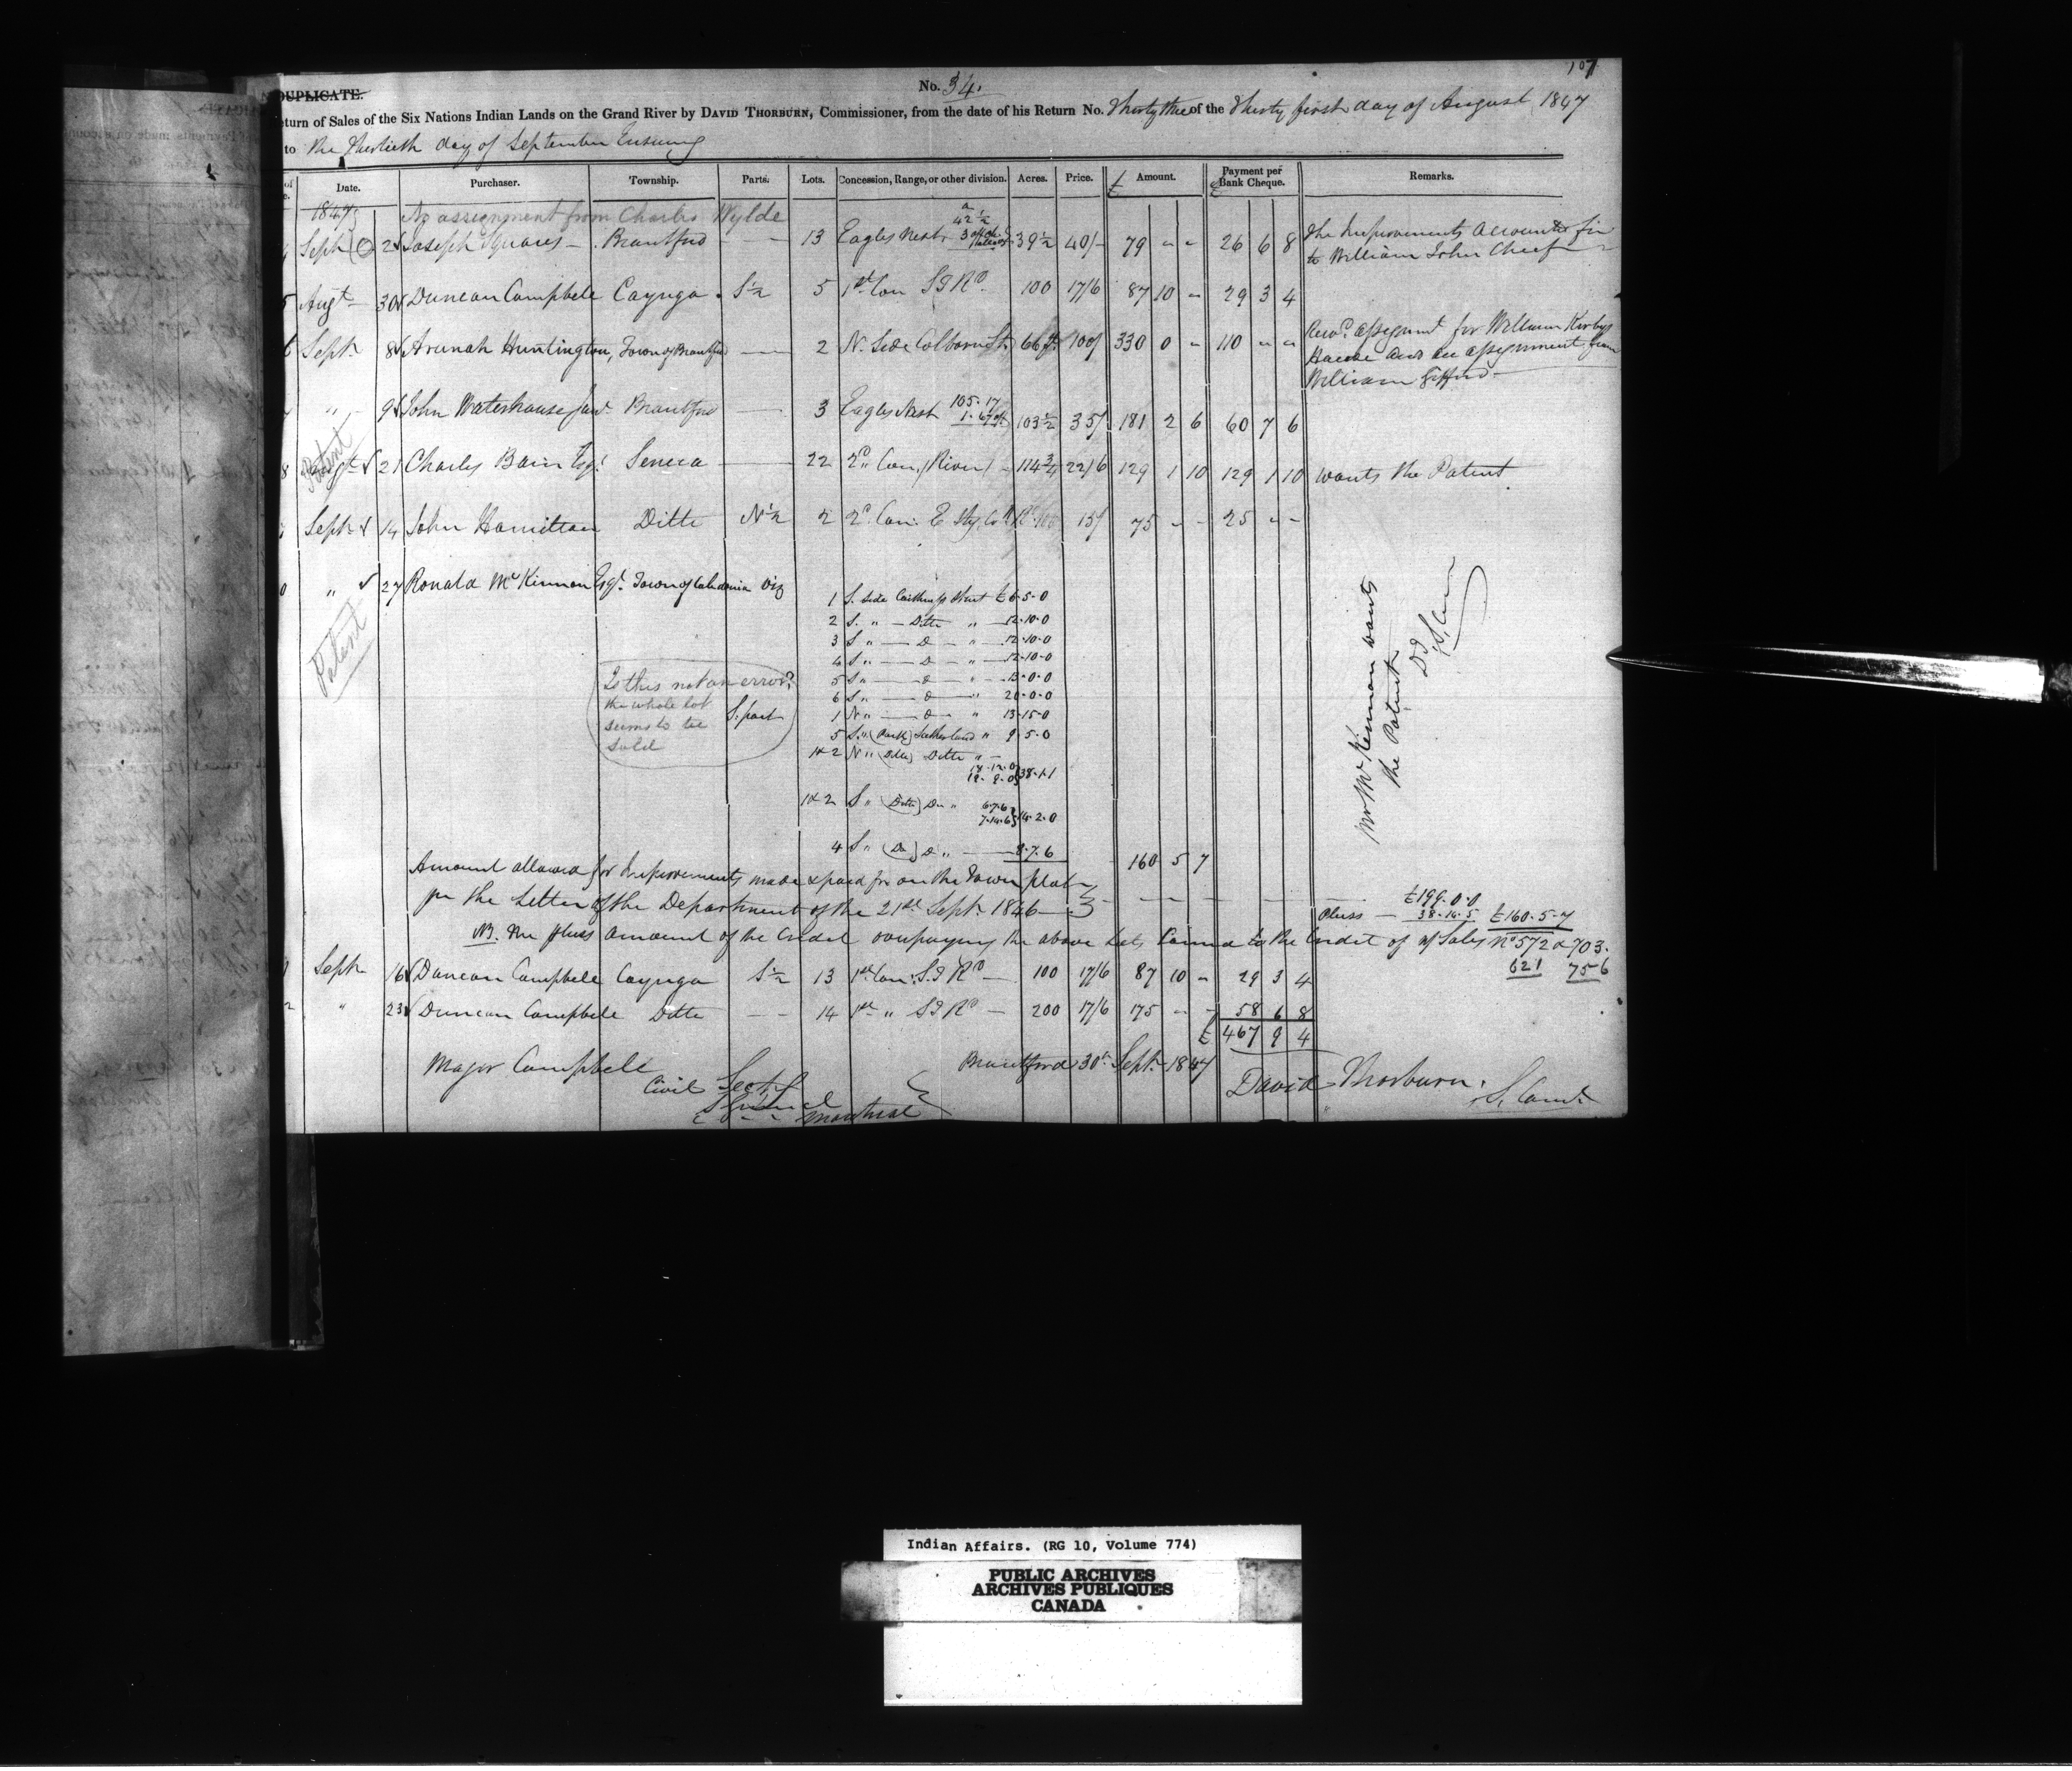 107
DUPLICATE.
No. 34.
eturn of Sales of the Six Nations Indian Lands on the Grand River by DAVID THORBURN, Commissioner, from the date of his Return No. Thirty three of the Thirty first day of August 1847
to the Thirtieth day of September Ensuing
Date. Purchaser. Township. Parts. Lots. Concession, Range, or other division. Acres. Price. £ Amount. £ Payment per Bank Cheque. Remarks.
1847 An assignment from Charles Wylde
Sept 2 Joseph Squares Brantford — — 13 Eagles Nest 42 1/2 3 39 1/2 40/- 79 - - 26 6 8 The Improvements accounted for
to William John Chief
Augt 30 Duncan Campbell Cayuga S 1/2 5 1st Con S I Rd 100 17/6 87 10 - 29 3 4
Sept 8 Arunah Huntington, Town of Brantford — 2 N. Side Colborne St. 66 ft 100/ 330 0 - 110 - - assignment for William Kirby
and an assignment from
William
" 9 John Waterhouse Brantford — 3 Eagles Nest 105.17 103 1/2 35/ 181 2 6 60 7 6
Patent
8 Augt 21 Charles Bain Esqr. Seneca — 22 2d Con. (River) 114 3/4 22/6 129 1 10 129 1 10 wants the Patent
Sept 14 John Hamilton Ditto N 1/2 2 2d Con. E 100 15/ 75 - - 25 - -
0 " 27 Ronald McKinnon Esqr. Town of Caledonia viz
1 S. Side Caithness Street £6-5-0
2 S. " — Ditto " — 12-10-0
3 S " — D — " — 12-10-0
4 S " — D — " — 12-10-0
5 S " — D — " — 13-0-0
6 S " — D — " 20-0-0
1 N " — D — " 13-15-0
S. part 5 S. " (Part) Sutherland " 9-5-0
1 & 2 N " (Ditto) Ditto " —
38-1-1
1 & 2 S " (Ditto) Do " 6-7-6
7-14-6 14-2-0
4 S " (Do) D " — 8-7-6
160 5 7
Patent
Is this not an error?
the whole lot
seems to be
sold
Mr McKinnon wants
the Patent
Amount allowed for Improvements made & paid for on the Town plat
pr the Letter of the Department of the 21st Sept. 1846 — £199-0-0
Pluss — 38-14-5 £160-5-7
NB. the pluss amount of the Credit overpaying the above Lots Carried to the Credit of of Sales No 572 & 703.
621 756
Sept 16 Duncan Campbell Cayuga S 1/2 13 1st Con. S I Rd — 100 17/6 87 10 - 29 3 4
" 23 Duncan Campbell Ditto — — 14 1st " S I Rd — 200 17/6 175 - - 58 6 8
£ 467 9 4
Major Campbell
Civil Secty
Montreal
Brantford 30th Sept. 1847
David Thorburn.
Indian Affairs. (RG 10, Volume 774)
PUBLIC ARCHIVES
ARCHIVES PUBLIQUES
CANADA